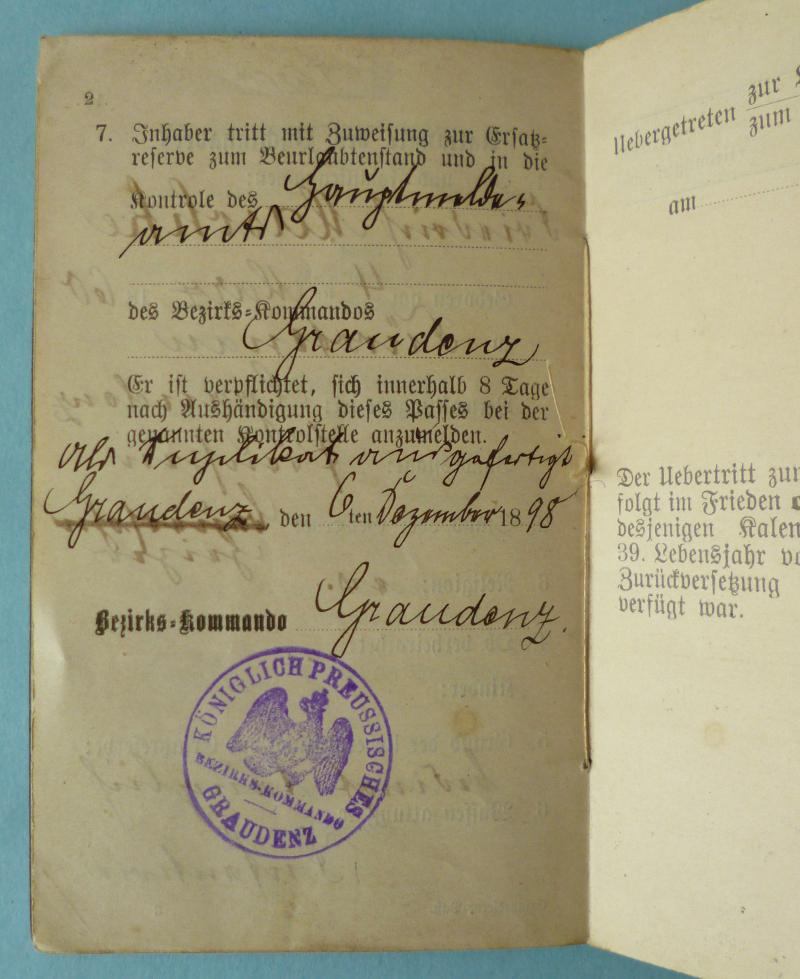 2
7. Inhaber tritt mit Zuweisung zur Ersatz=
reserve zum Beurlaubtenstand und in die
Kontrole des Hauptmelde-
amts
des Bezirks=Kommandos
Graudenz
Er ist verpflichtet, sich innerhalb 8 Tage
nach Aushändigung dieses Passes bei der
genannten Kontrolstelle anzumelden.
Als Duplikat ausgefertigt
Graudenz, den 6ten Dezember 1898
Bezirks=Kommando Graudenz.
KÖNIGLICH PREUSSISCHES
BEZIRKS-KOMMANDO
GRAUDENZ
Uebergetreten zur
zum
am
Der Uebertritt zur
folgt im Frieden
desjenigen Kalen
39. Lebensjahr vo
Zurückversetzung
verfügt war.